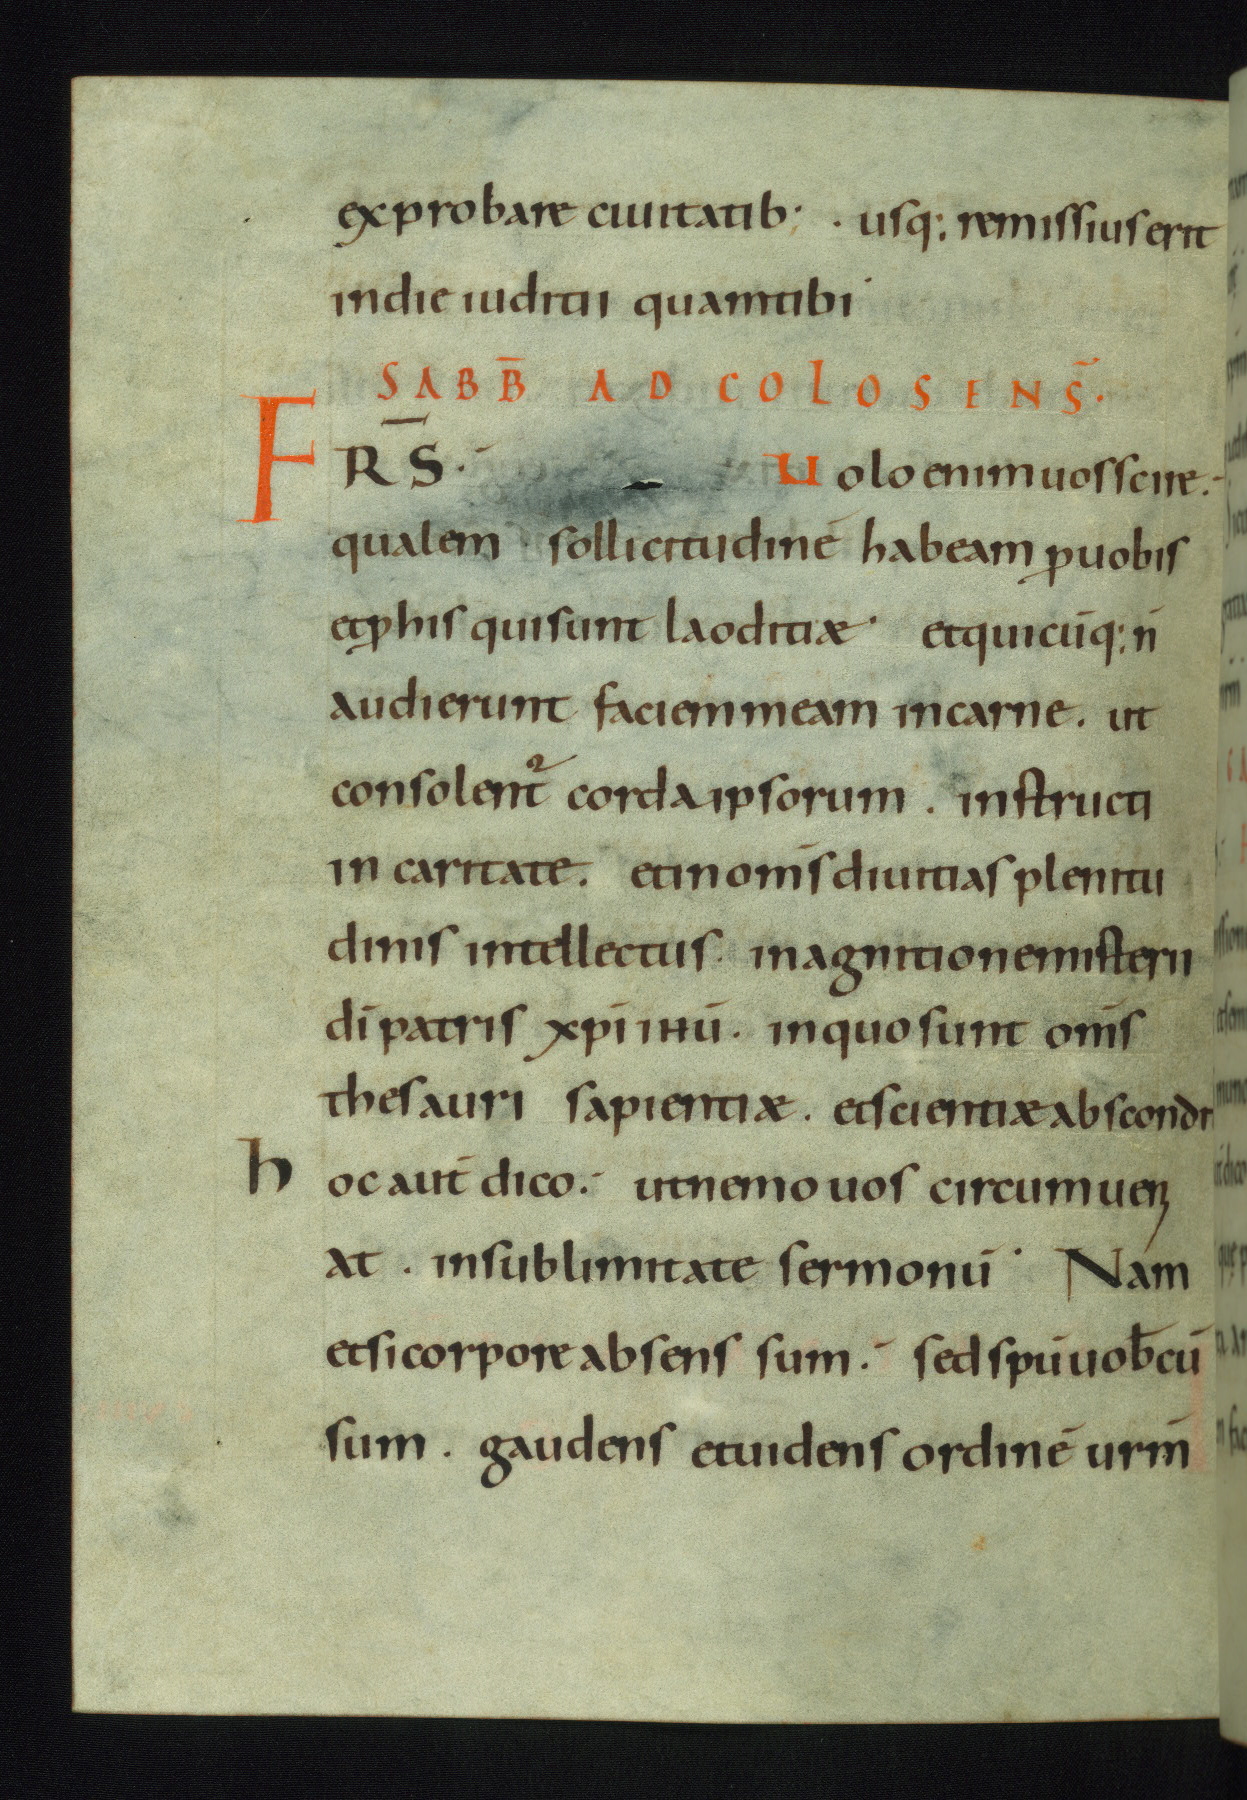 exprobare ciuitatib; · usq; remissius erit
in die iuditii quam tibi
SABB̄ AD COLOSENS̄·
FRS̄· Uolo enim uos scire·
qualem sollicitudinē habeam ꝓ uobis
et ꝓ his qui sunt laoditiæ· et quicūq; n̄
audierunt faciem meam in carne. ut
consolent᷑ corda ipsorum . instructi
in caritate. et in om̄s diuitias plenitu
dinis intellectus· in agnitione misterii
dī patris xp̄i ihū. in quo sunt om̄s
thesauri sapientiæ . et scientiæ absconditi
hoc aut̄ dico· ut nemo uos circumueni
at . in sublimitate sermonū· Nam
etsi corpore absens sum· sed spū uob̄cū
sum . gaudens et uidens ordinē urm̄